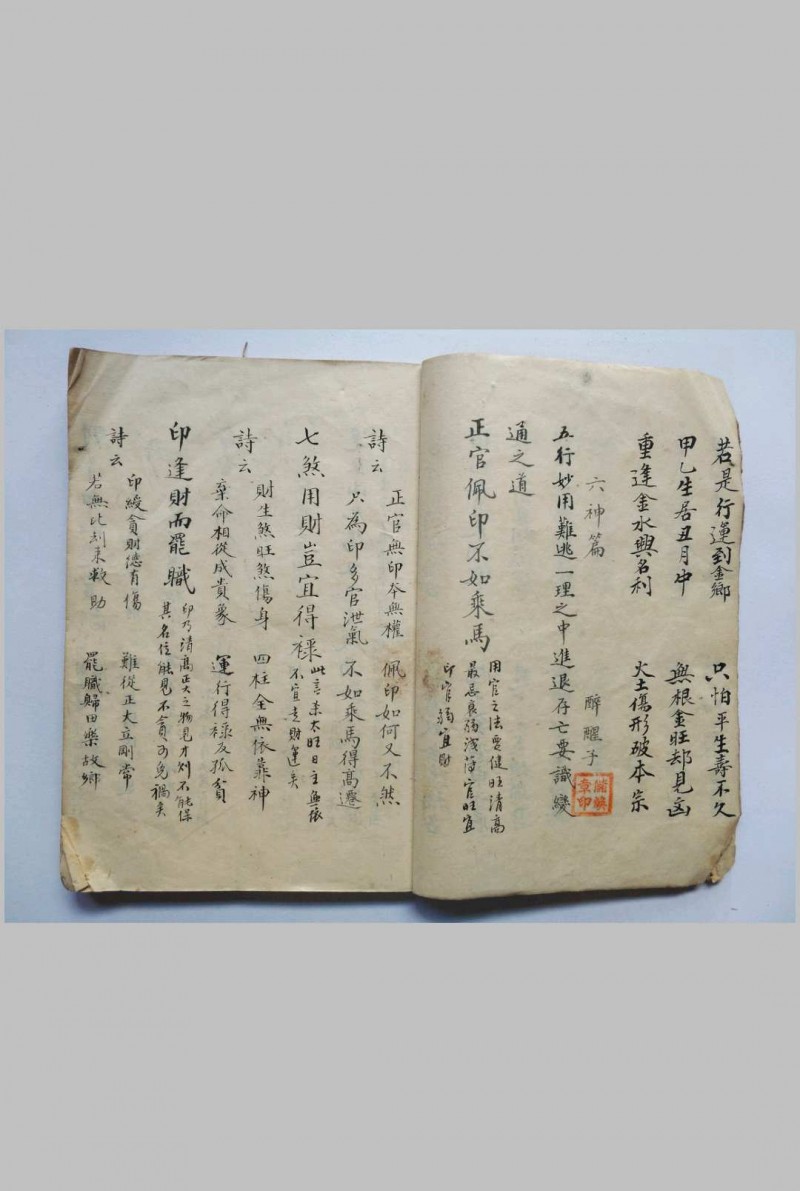 若是行運到金鄉 只怕平生壽不久
甲乙生居丑月中 無根金旺却見凶
重逢金水興名利 火土傷形破本宗
六神篇 醉醒子
五行妙用難逃一理之中進退存亡要識變
通之道
正官佩印不如乘馬
用官之法要健旺清高
最忌衰弱淺薄官旺宜
印官弱宜財
詩云
正官無印本無權 佩印如何又不然
只為印多官泄氣 不如乘馬得高遷
七煞用財豈宜得祿
此言柔太旺日主無依
不宜走財運矣
詩云
財生煞旺煞傷身 四柱全無依靠神
棄命相從成貴象 運行得祿反孤貧
印逢財而罷職
印乃清高正大之物見才則不能保
其名位能見不貪可免禍矣
詩云
印綬貪財總有傷 難從正大立剛常
若無比刦來救助 罷職歸田樂故鄉
章印